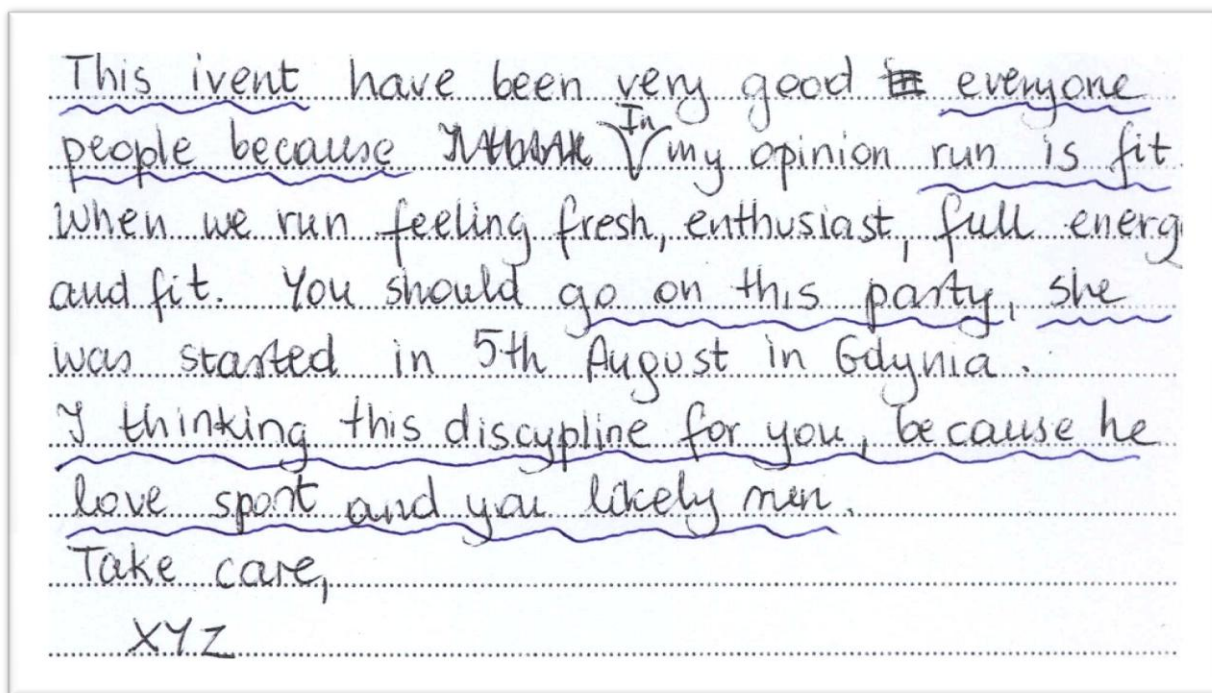 This ivent have been very good everyone
people because In my opinion run is fit.
When we run feeling fresh, enthusiast, full energ
and fit. You should go on this party, she
was started in 5th August in Gdynia.
I thinking this discypline for you, because he
love sport and you likely run.
Take care,
XYZ